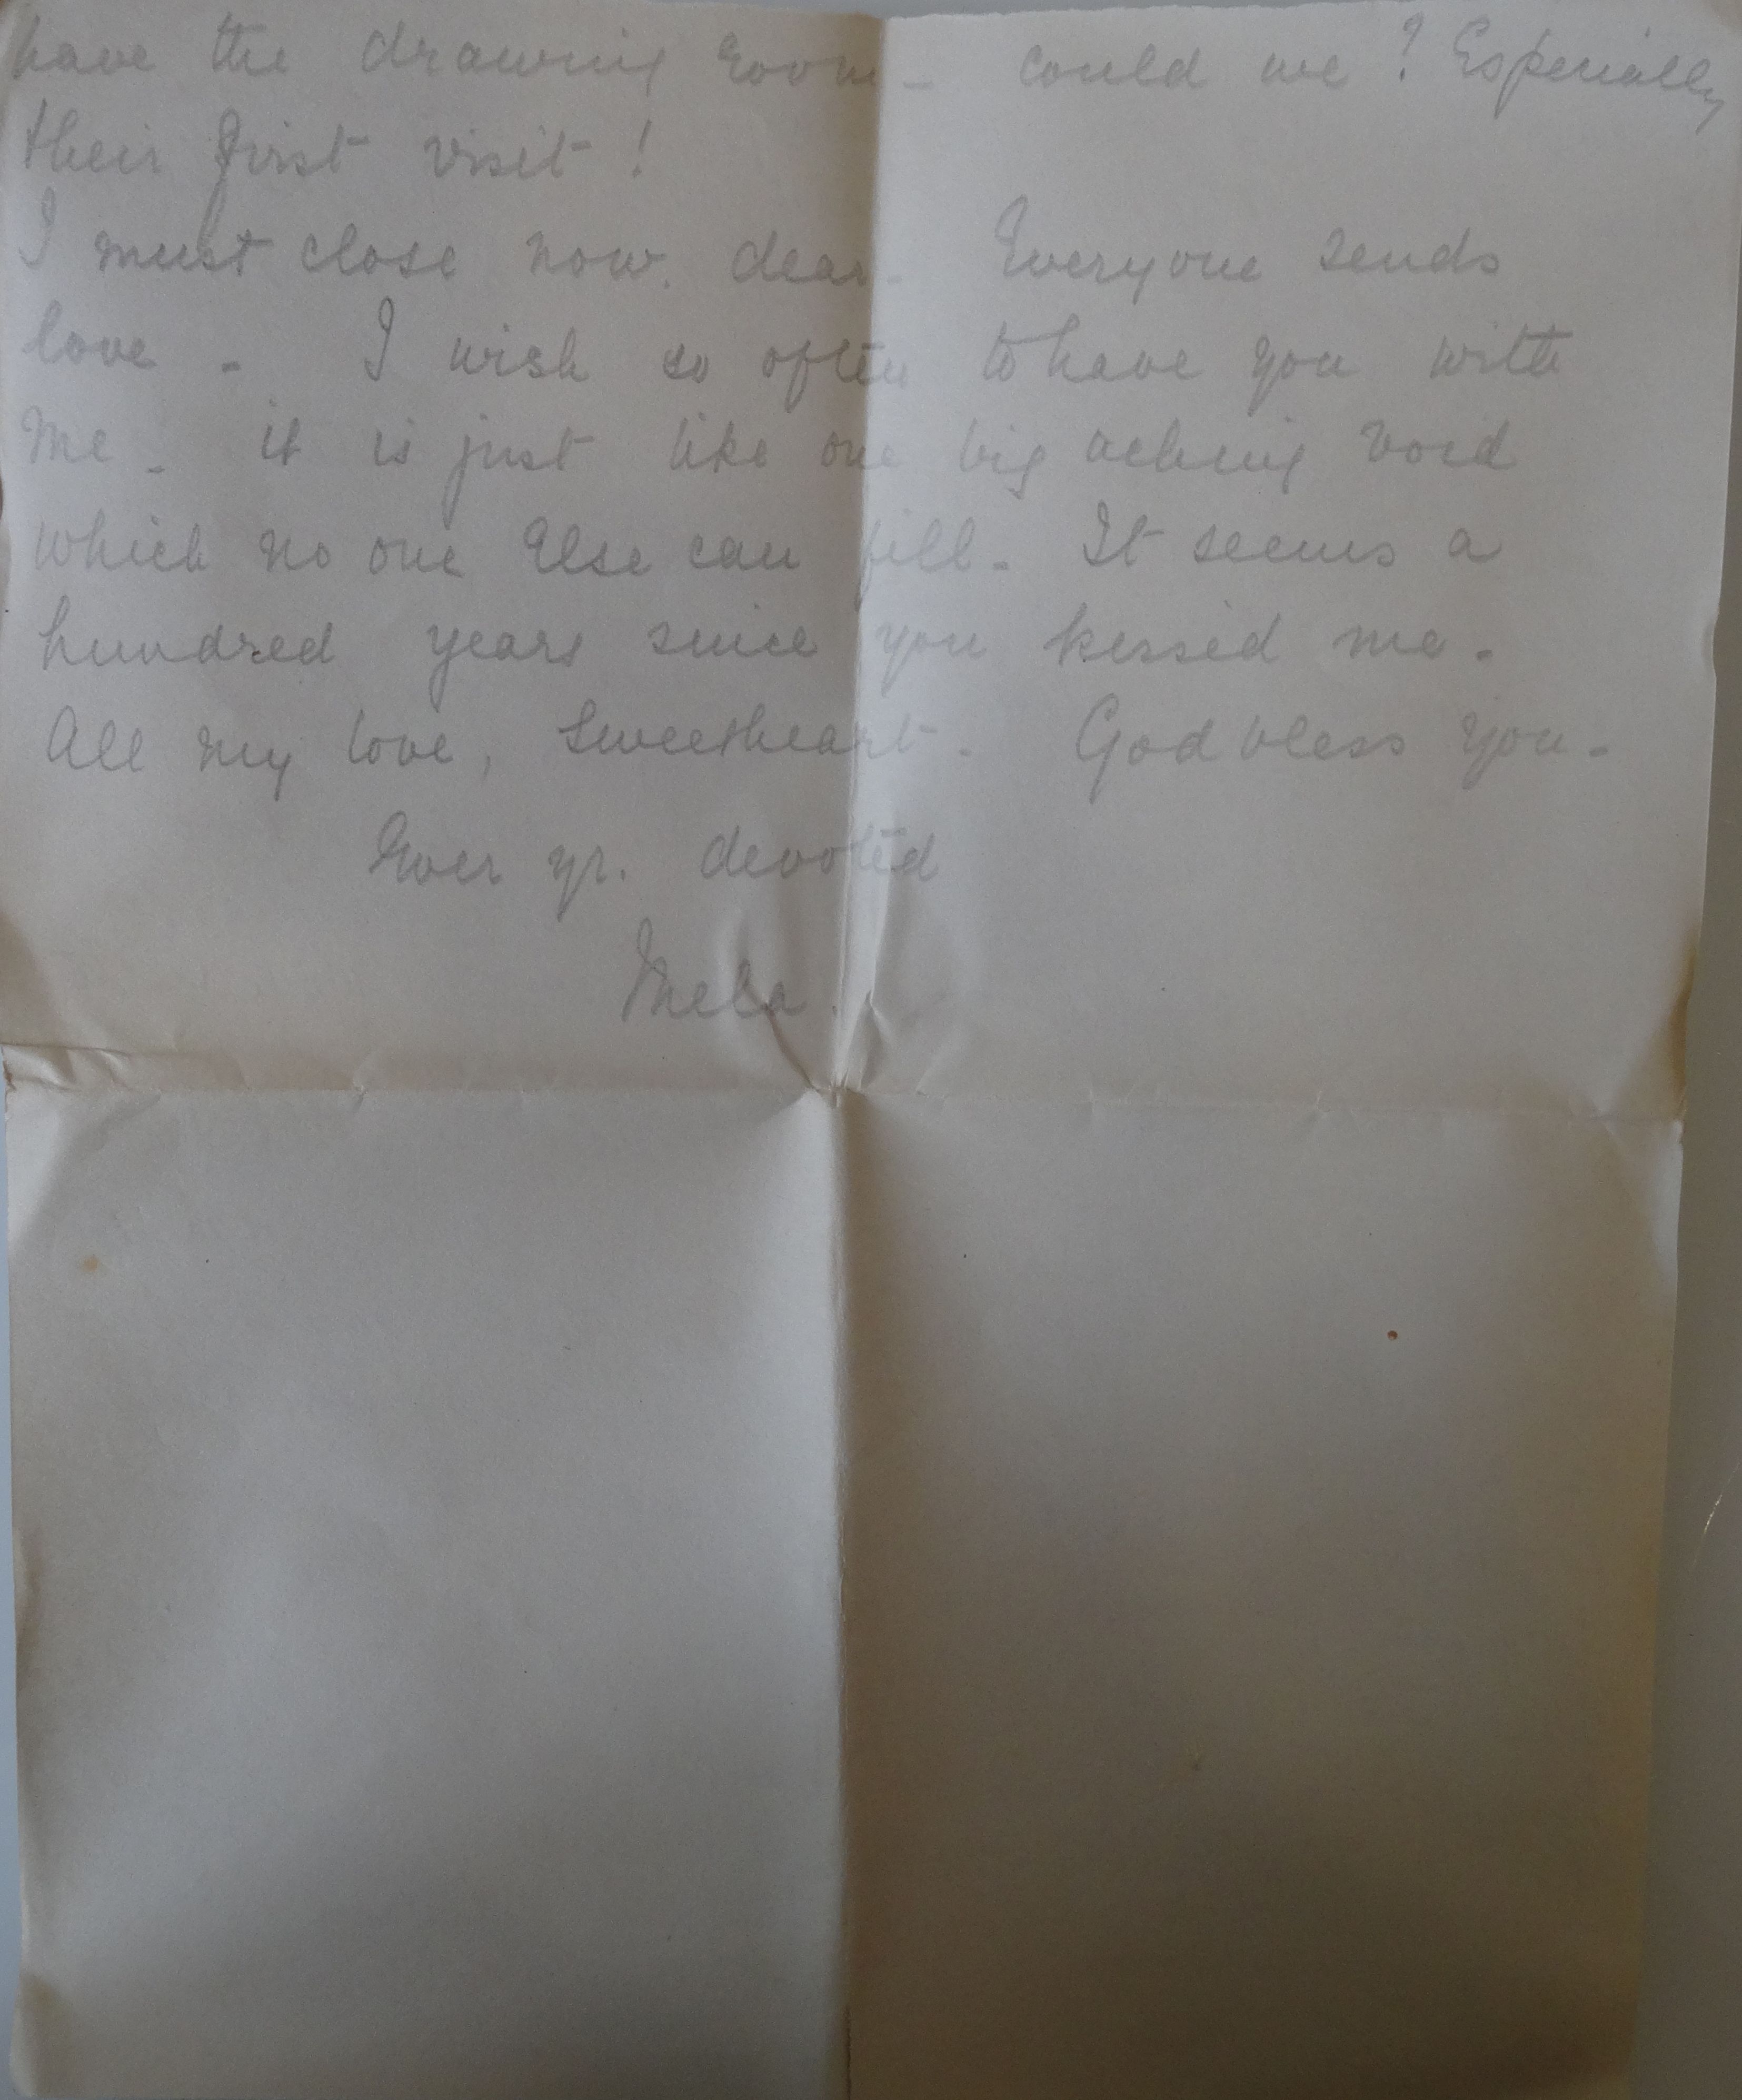 have the drawing room - could we? Especially
their first visit!
I must close now, dear - Everyone sends
love - I wish so often to have you with
me - it is just like one big aching void
which no one else can fill - It seems a
hundred years since you kissed me -
All my love, Sweetheart - God bless you -
Ever yr. devoted
Mela.